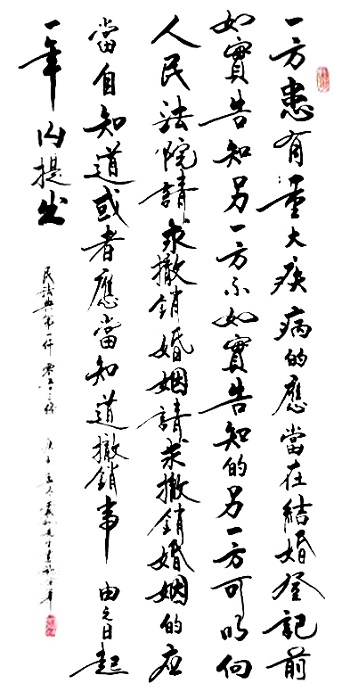 一方患有重大疾病的應當在結婚登記前
如實告知另一方不如實告知的另一方可以向
人民法院請求撤銷婚姻請求撤銷婚姻的应
當自知道或者應當知道撤銷事由之日起
一年內提出
民法典第一仟零五十三條 庚子